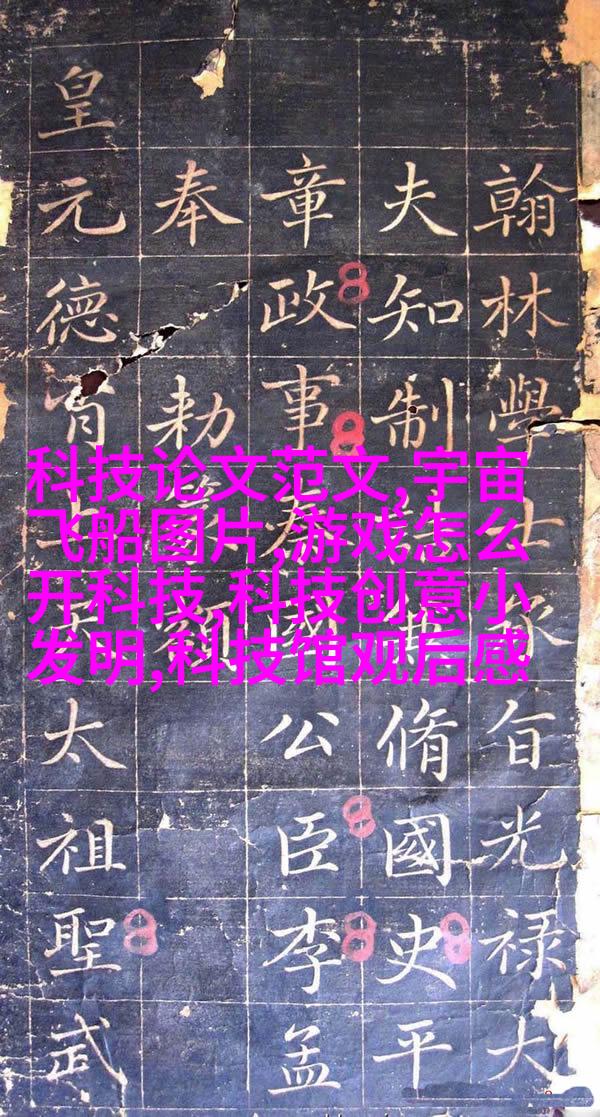 翰林學士承旨光禄大
夫知制誥兼脩國史平
章政事秦國公臣李孟
奉勅篆額
皇元德肖上天太祖聖武
科技论文范文,宇宙
飞船图片,游戏怎么
开科技,科技创意小
发明,科技馆观后感